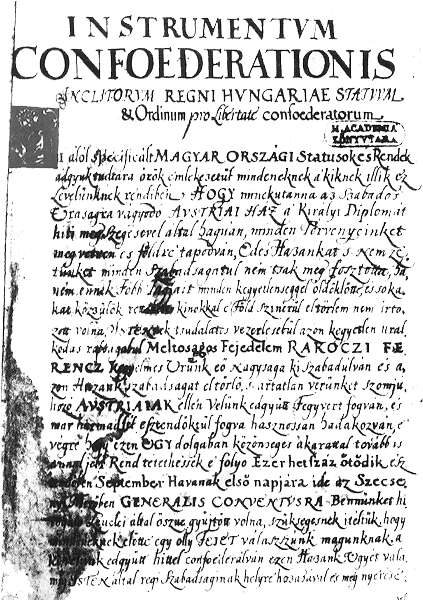 INSTRUMENTVM
CONFOEDERATIONIS
INCLITORVM REGNI HVNGARIAE STATVVM
& Ordinum pro Libertate confoederatorum
M. ACADEMIA
KÖNYVTÁRA
alól specificált MAGYAR ORSZÁGI Statusok es Rendek
adgyuk tudtára örök emlekesetül mindeneknek a' kiknek illik ez
Levelünknek rendiben HOGY minekutánna az Szabados
Országra vágyodo AVSTRIAI HAZ a' Királyi Diplomát
hiti megszegésével által hágván, minden Törvenyeinket
megvetven es földre tapodván, Edes Hazánkat s Nemze
tünket minden Szabadságátul nem tsak meg fosztotta, ha
nem ennak Főbb Tagjait minden kegyetlenséggel öldöklötte, es soka
kat közzülök kinokkal e' Föld szinérül eltörlem nem irto
zott volna, ISTENnek tsudalatos vezerlesebül azon kegyetlen ural
kodás Meltoságos Fejedelem RÁKOCZI FE
RENCZ Kegyelmes Urunk eö Nagysaga ki Szabadulván es a
zon Hazánk szabadságát eltörlő, s ártatlan vérünket szomju
hozo AVSTRIAIAK ellen Velünk edgyütt Fegyvert fogván, es
már harmadfél esztendőktül fogva hasznossan hadakozván,
végre hogy ezen ÜGY dolgában közönséges akarattal tovább is
jobb Rend tetethessék e' folyo Ezer hetszáz ötödik esz
tendöben September Havának első napjára ide az Szecse
Mezőben GENERALIS CONVENTVSRA Bennünket hi
Levelei által öszve gyüjtött volna, szükségesnek iteltük hogy
mindeneknek előtte egy olly FEJET valasszunk magunknak a
kivel edgyütt hittel confoederálván ezen Hazánk Ügyét vala
ISTEN által regi Szabadságinak helyre hozásával es meg nyerésé